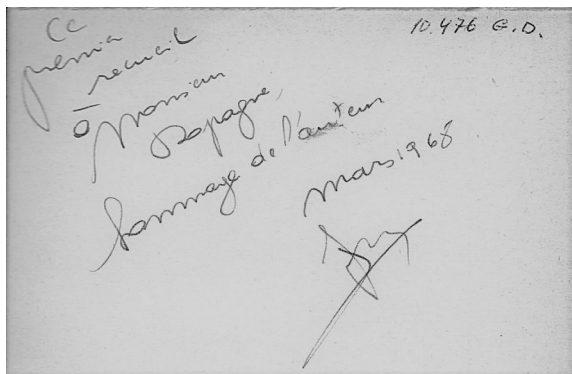 10.476 G.D.
Ce
premier
recueil
à Monsieur
Papagne,
hommage de l'auteur
mars 1968